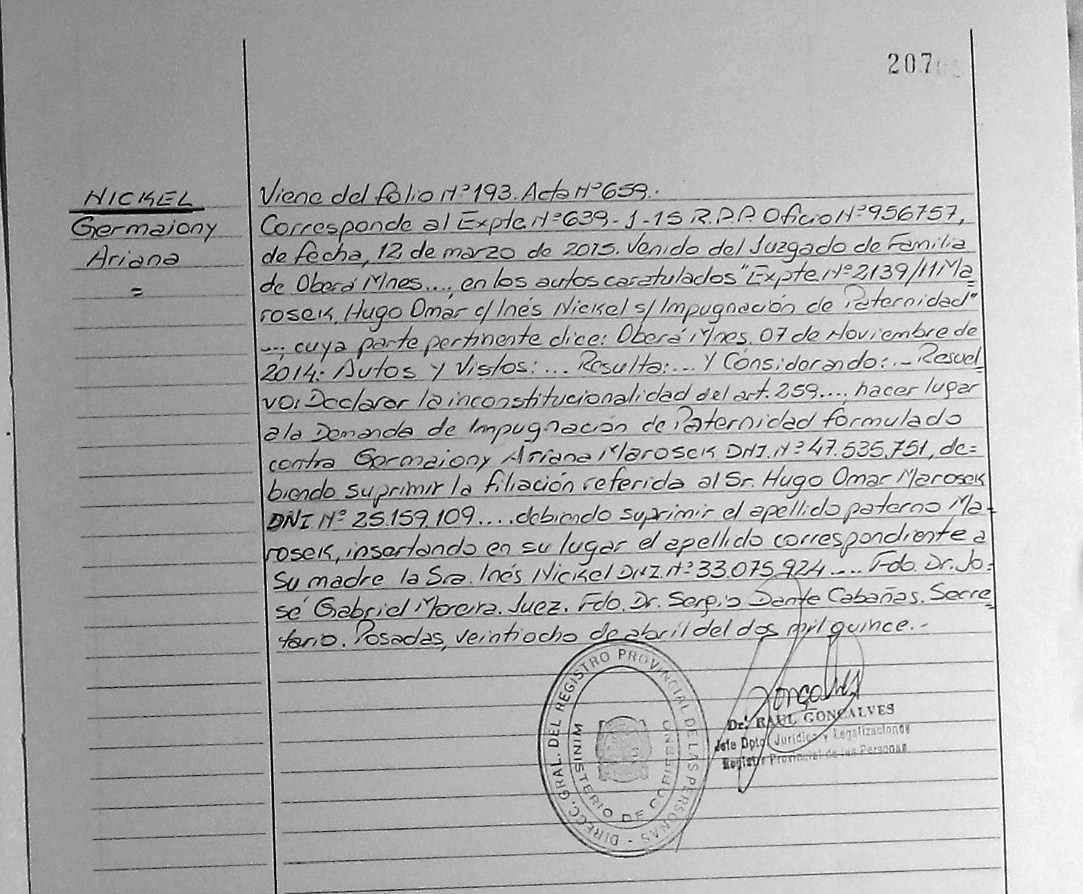 207
NICKEL
Germaiony
Ariana
=
Viene del folio Nº 193. Acta Nº 659.
Corresponde al Expte. Nº 639-1-15 R.P.P. Oficio Nº 956757,
de fecha, 12 de marzo de 2015. Venido del Juzgado de Familia
de Oberá Mnes..., en los autos caratulados "Expte. Nº 2139/11 Ma
rosek, Hugo Omar c/ Inés Nickel s/ Impugnación de Paternidad"
...; cuya parte pertinente dice: Oberá Mnes. 07 de Noviembre de
2014: Autos y Vistos:... Resulta:... Y Considerando:... Resuel
vo: Declarar la inconstitucionalidad del art. 259..., hacer lugar
a la Demanda de Impugnación de Paternidad formulado
contra Germaiony Ariana Marosek DNI. Nº 47.535.751, de=
biendo suprimir la filiación referida al Sr. Hugo Omar Marosek
DNI Nº 25.159.109.... debiendo suprimir el apellido paterno Ma-
rosek, insertando en su lugar el apellido correspondiente a
su madre la Sra. Inés Nickel DNI. Nº 33.075.924.... Fdo. Dr. Jo=
sé Gabriel Moreira. Juez. Fdo. Dr. Sergio Dante Cabañas. Secre=
tario. Posadas, veintiocho de abril del dos mil quince.-
DIRECC. GRAL. DEL REGISTRO PROVINCIAL DE LAS PERSONAS
MINISTERIO DE GOBIERNO
Gonçalves
Dr. RAUL GONCALVES
Jefe Dpto. Jurídico y Legalizaciones
Registro Provincial de las Personas